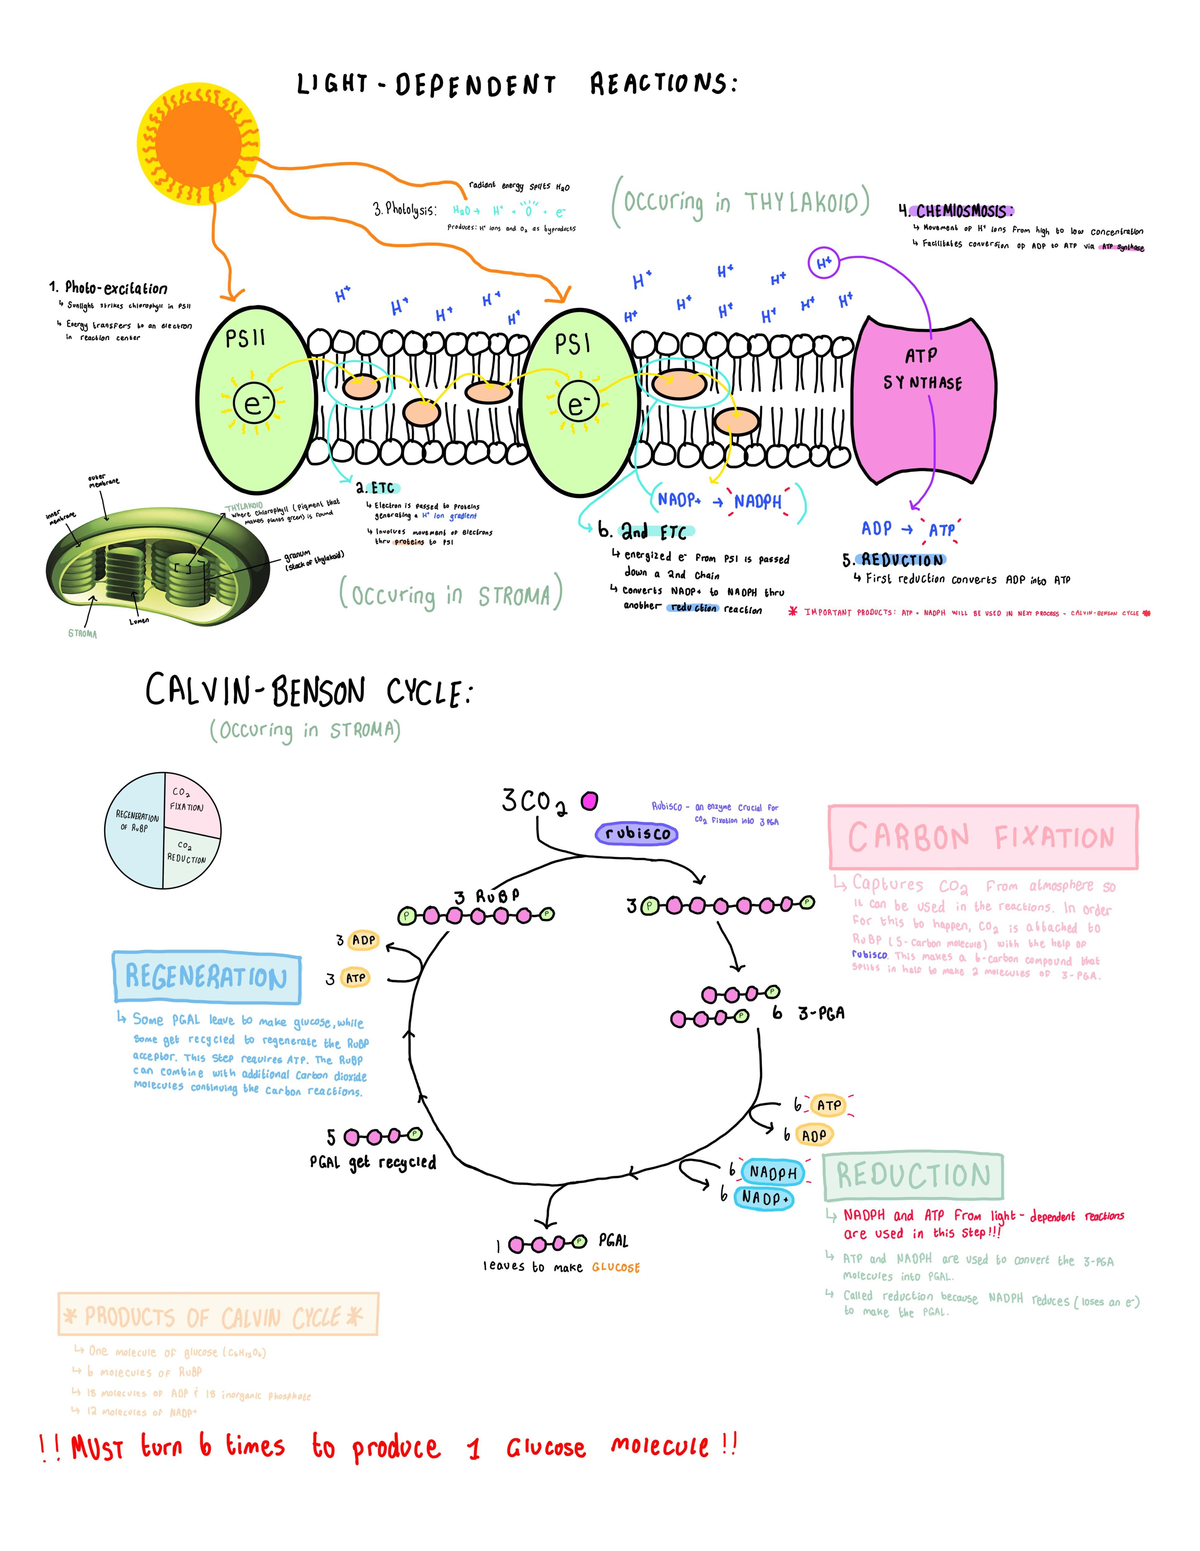 LIGHT-DEPENDENT REACTIONS:
radiant energy splits H2O
3. Photolysis: H2O → H+ + "O" + e-
Produces: H+ ions and O2 as byproducts
(Occuring in THYLAKOID)
4. CHEMIOSMOSIS:
↳ Movement of H+ ions from high to low concentration
↳ Facilitates conversion of ADP to ATP via ATP synthase
1. Photo-excitation
↳ Sunlight strikes chlorophyll in PSII
↳ Energy transfers to an electron
in reaction center
H+ H+ H+ H+ H+
H+ H+ H+ H+ H+ H+ H+ H+ H+
PSII
e-
PSI
e-
ATP
SYNTHASE
2. ETC
↳ Electron is passed to proteins
generating a H+ ion gradient
↳ Involves movement of electrons
thru proteins to PSI
(NADP+ → NADPH)
6. 2nd ETC
↳ energized e- from PSI is passed
down a 2nd chain
↳ converts NADP+ to NADPH thru
another reduction reaction
ADP → ATP
5. REDUCTION
↳ First reduction converts ADP into ATP
* IMPORTANT PRODUCTS: ATP + NADPH WILL BE USED IN NEXT PROCESS - CALVIN-BENSON CYCLE *
outer
membrane
inner
membrane
THYLAKOID
where chlorophyll (pigment that
makes plants green) is found
granum
(stack of thylakoid)
Lumen
STROMA
(Occuring in STROMA)
CALVIN-BENSON CYCLE:
(Occuring in STROMA)
REGENERATION
OF RuBP
CO2
FIXATION
CO2
REDUCTION
3CO2
rubisco
Rubisco - an enzyme crucial for
CO2 fixation into 3PGA
3 RuBP
P P
3 P P
CARBON FIXATION
↳ Captures CO2 from atmosphere so
it can be used in the reactions. In order
for this to happen, CO2 is attached to
RuBP (5-carbon molecule) with the help of
rubisco. This makes a 6-carbon compound that
splits in half to make 2 molecules of 3-PGA.
3 ADP
3 ATP
REGENERATION
↳ Some PGAL leave to make glucose, while
some get recycled to regenerate the RuBP
acceptor. This step requires ATP. The RuBP
can combine with additional carbon dioxide
molecules continuing the carbon reactions.
P
P
6 3-PGA
6 ATP
6 ADP
6 NADPH
6 NADP+
5 P
PGAL get recycled
1 P PGAL
leaves to make GLUCOSE
REDUCTION
↳ NADPH and ATP from light-dependent reactions
are used in this step!!!
↳ ATP and NADPH are used to convert the 3-PGA
molecules into PGAL.
↳ Called reduction because NADPH reduces (loses an e-)
to make the PGAL.
* PRODUCTS OF CALVIN CYCLE *
↳ One molecule of glucose (C6H12O6)
↳ 6 molecules of RuBP
↳ 18 molecules of ADP & 18 inorganic phosphate
↳ 12 molecules of NADP+
!! MUST turn 6 times to produce 1 Glucose molecule !!